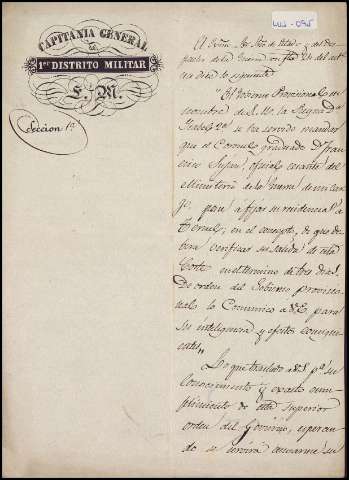 LUIS-095
CAPITANIA GENERAL
del
1er DISTRITO MILITAR
E. M.
Seccion 1ª
El Señor
de la Guerra en
dice lo siguiente
"El Gobierno Provisional en
nombre de S. M. la Reyna Dª
Isabel 2ª se ha servido mandar
que el Coronel graduado Dn Fran
cisco oficial cuarto del
Ministerio de la Guerra
pase a fijar su residencia a
Teruel; en el concepto, de que de
bera verificar su salida de esta
Corte en el termino de tres dias.
De orden del Gobierno provisio
nal lo Comunico a V.E. para
su inteligencia y efectos consiguien
tes"
Lo que traslado a V.S. pª su
Conocimiento y exacto cum-
plimiento de esta Superior
orden del Govierno, esperan
do se servirá avisarme su